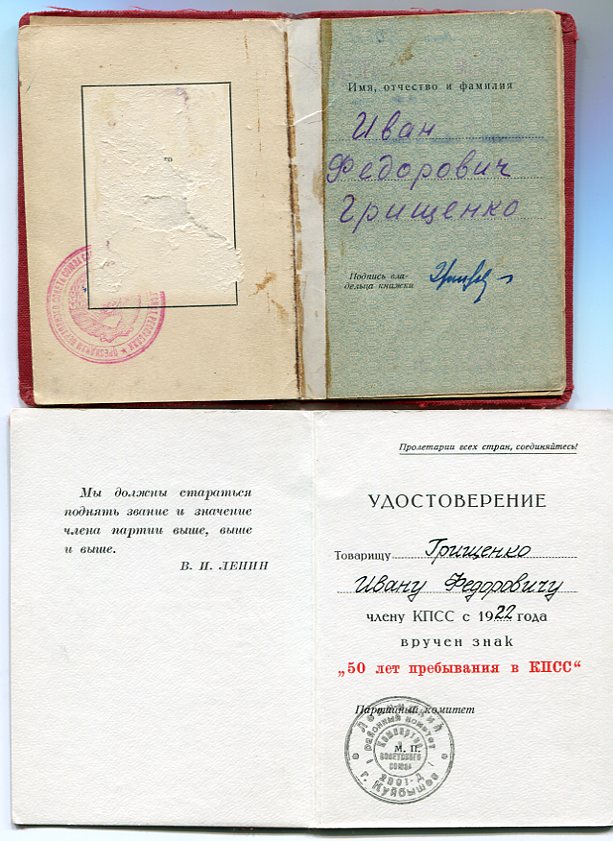 Имя, отчество и фамилия
Иван
Федорович
Грищенко
Подпись вла-
дельца книжки
Пролетарии всех стран, соединяйтесь!
Мы должны стараться
поднять звание и значение
члена партии выше, выше
и выше.
В. И. ЛЕНИН
УДОСТОВЕРЕНИЕ
Товарищу Грищенко
Ивану Федоровичу
члену КПСС с 1922 года
вручен знак
„50 лет пребывания в КПСС“
Партийный комитет
М. П.
Ленинский
районный комитет
Коммунистич
Советского
Союза
г. Куйбышев